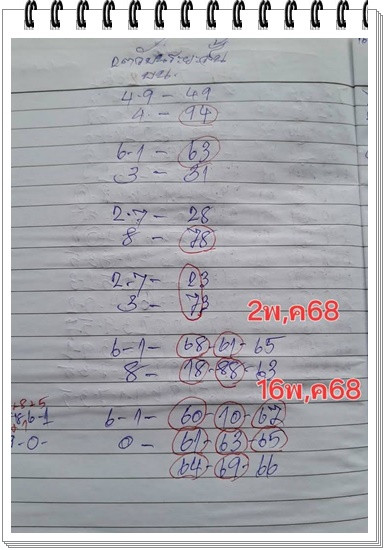 บน.
4-9 - 49
4 - 94
6-1 - 63
3 - 31
2-7 - 28
8 - 78
2-7 - 23
3 - 73
2พ,ค68
6-1 - 68-61-65
8 - 18-88-63
16พ,ค68
6-1 - 60-10-62
0 - 61-63-65
64-69-66